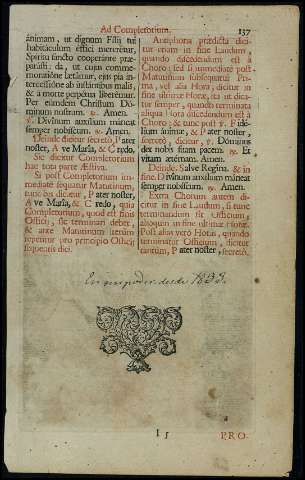 Ad Completorium. 137
animam, ut dignum Filij tui
habitáculum effici mererétur,
Spíritu sancto cooperánte præ-
parásti: da, ut cujus comme-
moratióne lætámur, ejus pia in-
tercessióne ab instántibus malis,
& a morte perpétua liberémur.
Per eúmdem Christum Dó-
minum nostrum. ℟. Amen.
℣. Divínum auxílium máneat
semper nobíscum. ℟. Amen.
Deinde dicitur secretò, Pater
noster, Ave María, & Credo.
Sic dicitur Completorium
hac tota parte Æstiva.
Si post Completorium im-
mediatè sequatur Matutinum,
tunc bis dicitur, Pater noster,
Ave María, & Credo, quia
Completorium, quod est finis
Officij, sic terminari debet,
& ante Matutinum iterùm
repetitur pro principio Officij
sequentis diei.
Antiphona prædicta dici-
tur etiam in fine Laudum,
quando discedendum est à
Choro; sed si immediatè post
Matutinum subsequatur Pri-
ma, vel alia Hora, dicitur in
fine ultimæ Horæ, ita ut dica-
tur semper, quando terminata
aliqua Hora discedendum est à
Choro: & tunc post ℣. Fidé-
lium ánimæ, & Pater noster,
secretò, dicitur, ℣. Dóminus
det nobis suam pacem. ℟. Et
vitam ætérnam. Amen.
Deinde, Salve Regína. & in
fine Divínum auxílium máneat
semper nobíscum. ℟. Amen.
Extra Chorum autem di-
citur in fine Laudum, si tunc
terminandum sit Officium,
alioquin in fine ultimæ Horæ.
Post alias verò Horas, quando
terminatur Officium, dicitur
tantùm, Pater noster, secretò.
desde 1835.
I 5 PRO-